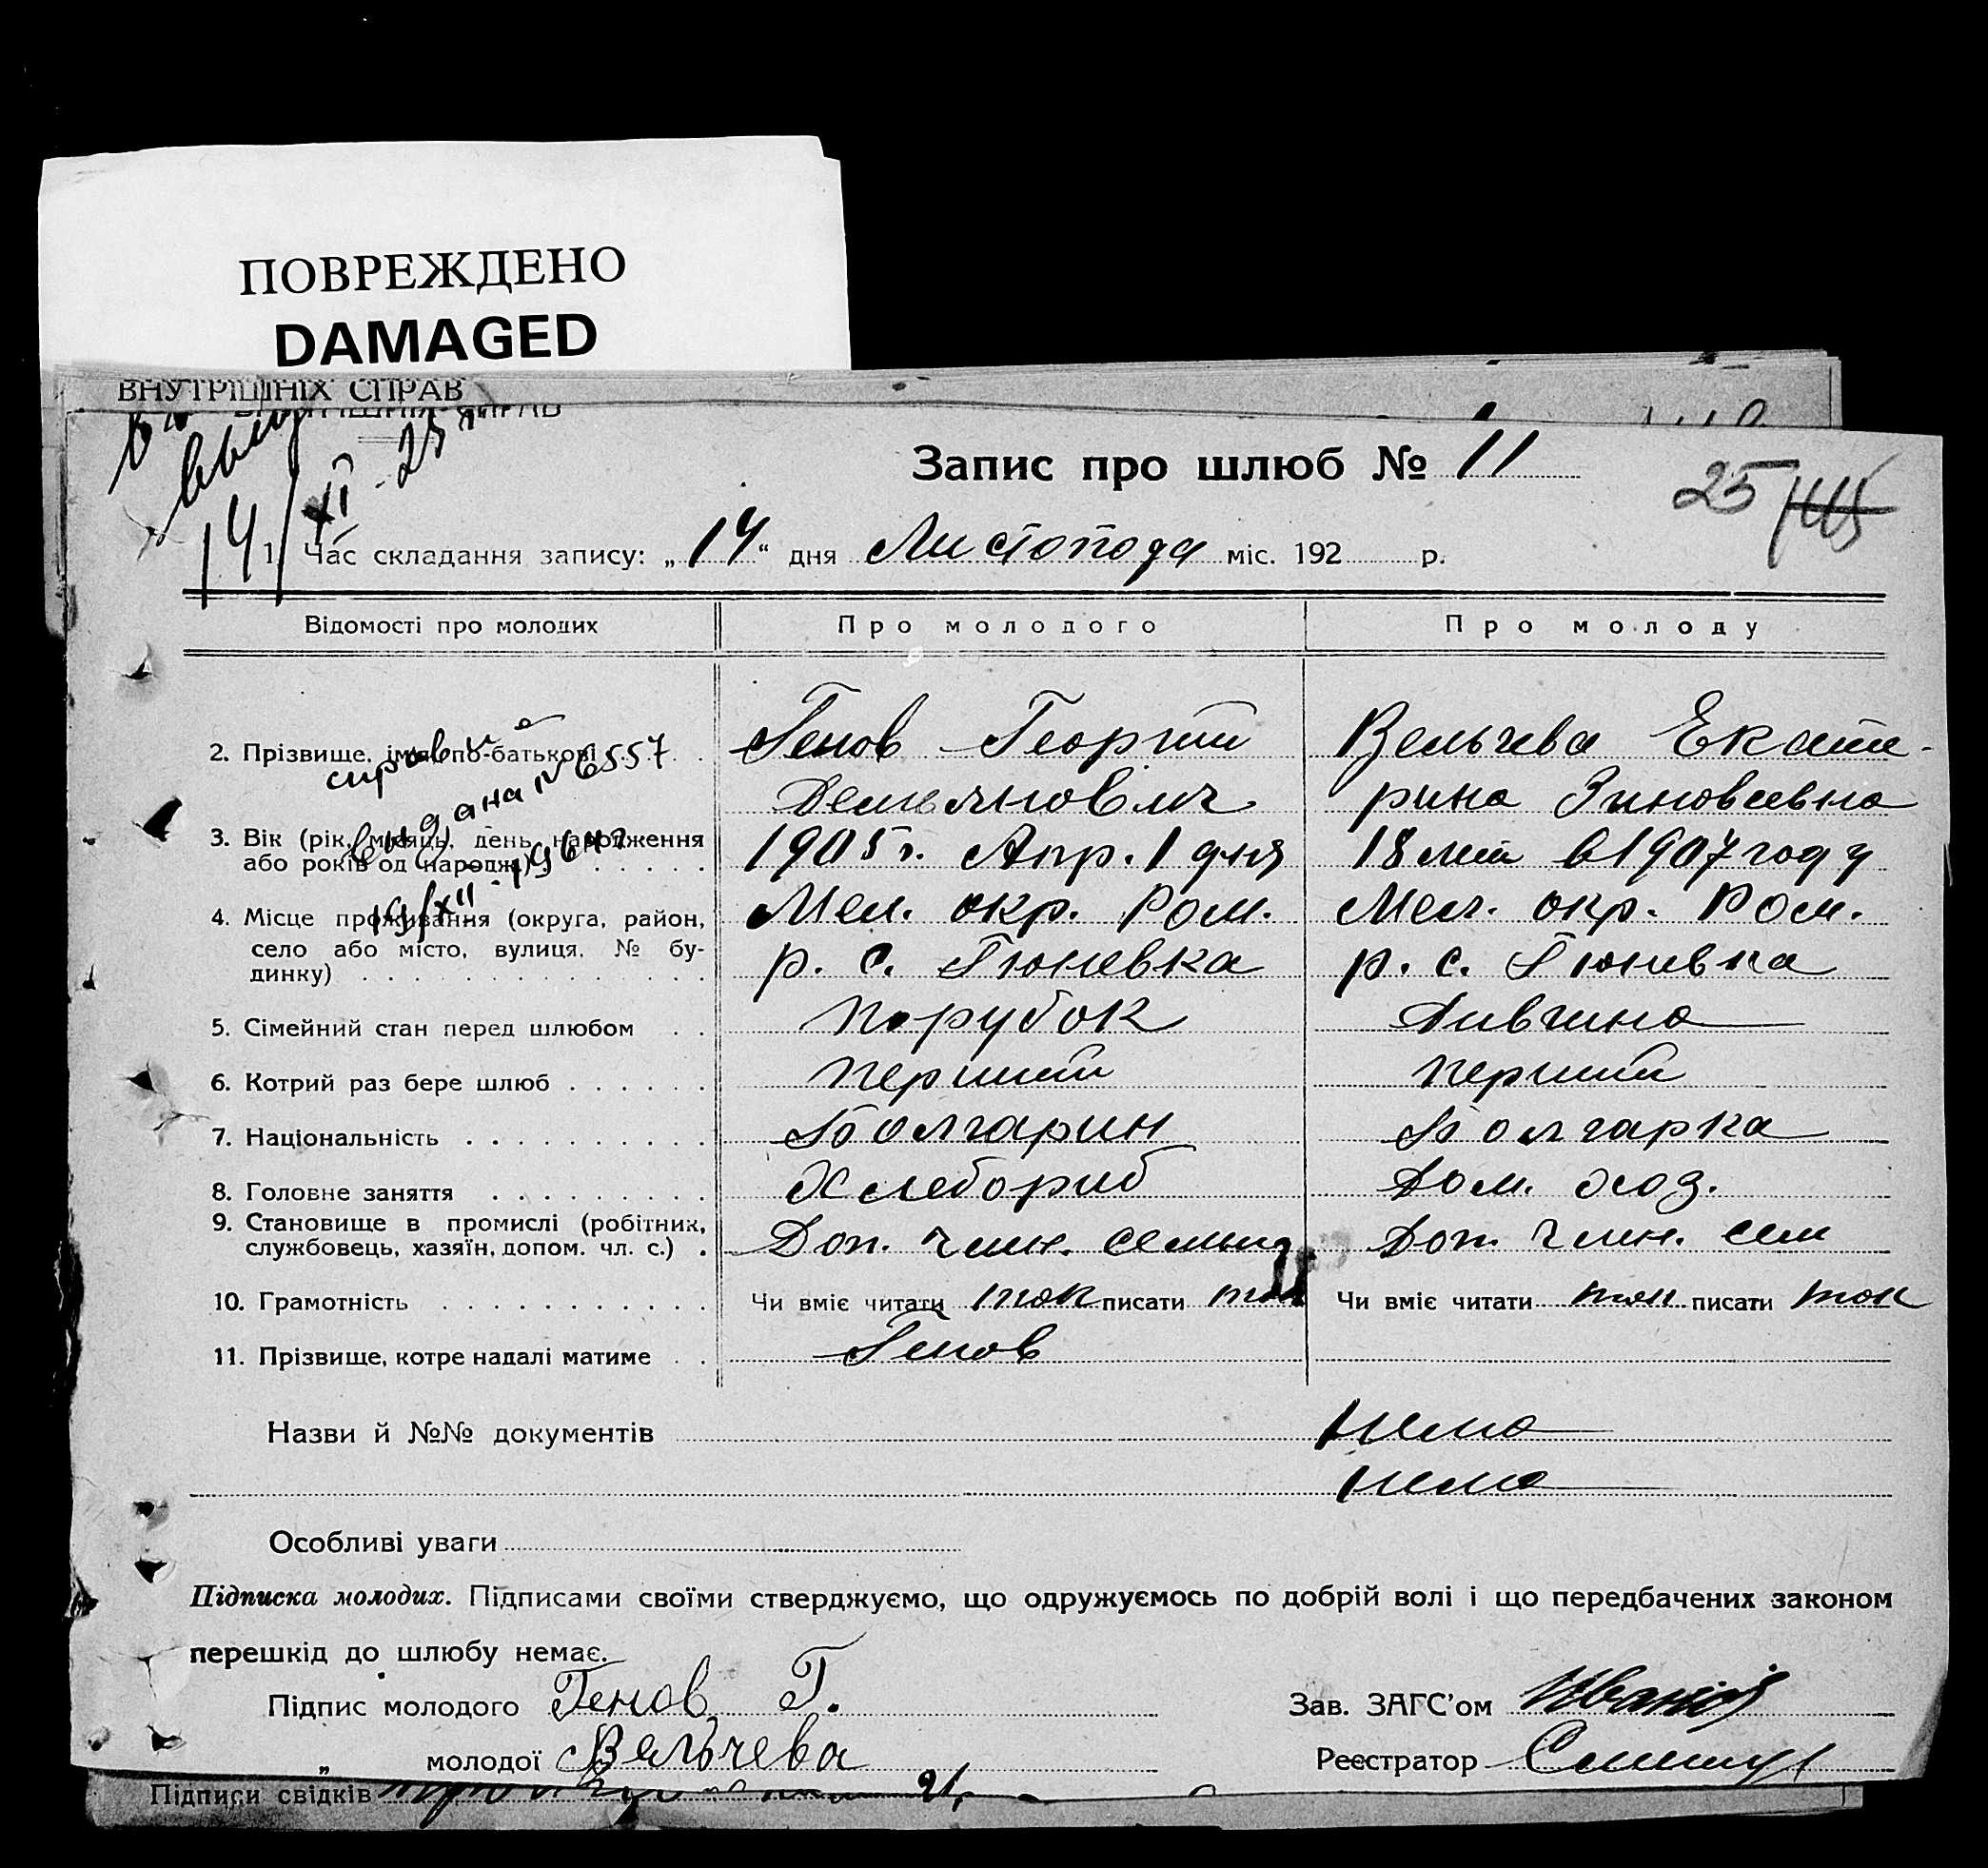 ПОВРЕЖДЕНО
DAMAGED
ВНУТРІШНІХ СПРАВ
14/XI-25
Запис про шлюб № 11
25
1. Час складання запису: „14“ дня Листопода міс. 192 р.
Відомості про молодих Про молодого Про молоду
2. Прізвище, імя, по-батькові Генов Георгий Вельчева Екате-
Демьянович рина Зиновеевна
видана № 6557
3. Вік (рік, місяць, день народження 1905 г. Апр. 1 дня 18 лет в 1907 году
або років од народж.)
19/XII-1964 г
4. Місце проживання (округа, район, Мел. окр. Ром. Мел. окр. Ром.
село або місто, вулиця, № бу- р. с. Гюневка р. с. Гюневка
динку)
5. Сімейний стан перед шлюбом Порубок Дивчина
6. Котрий раз бере шлюб Перший Перший
7. Національність Болгарин Болгарка
8. Головне заняття Хлебориб Дом. хоз.
9. Становище в промислі (робітник,
службовець, хазяїн, допом. чл. с.) Доп. член. семьи Доп. член. сем
10. Грамотність Чи вміє читати так писати так Чи вміє читати так писати так
11. Прізвище, котре надалі матиме Генов
Назви й №№ документів Нема
Нема
Особливі уваги
Підписка молодих. Підписами своїми стверджуємо, що одружуємось по добрій волі і що передбачених законом
перешкід до шлюбу немає.
Підпис молодого Генов Г. Зав. ЗАГС’ом
„ молодої Вельчева Реєстратор
Підписи свідків